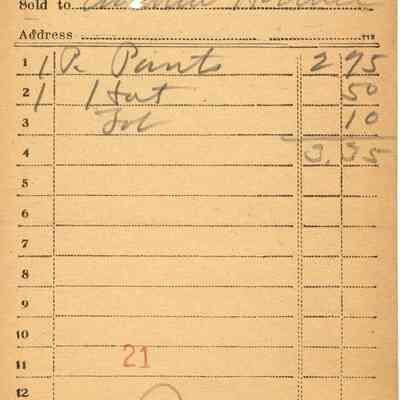 Sold to
Address
1 1 Pr. Pants 2 95
2 1 Hat 50
3 10
4 3.35
5
6
7
8
9
10
21
11
12